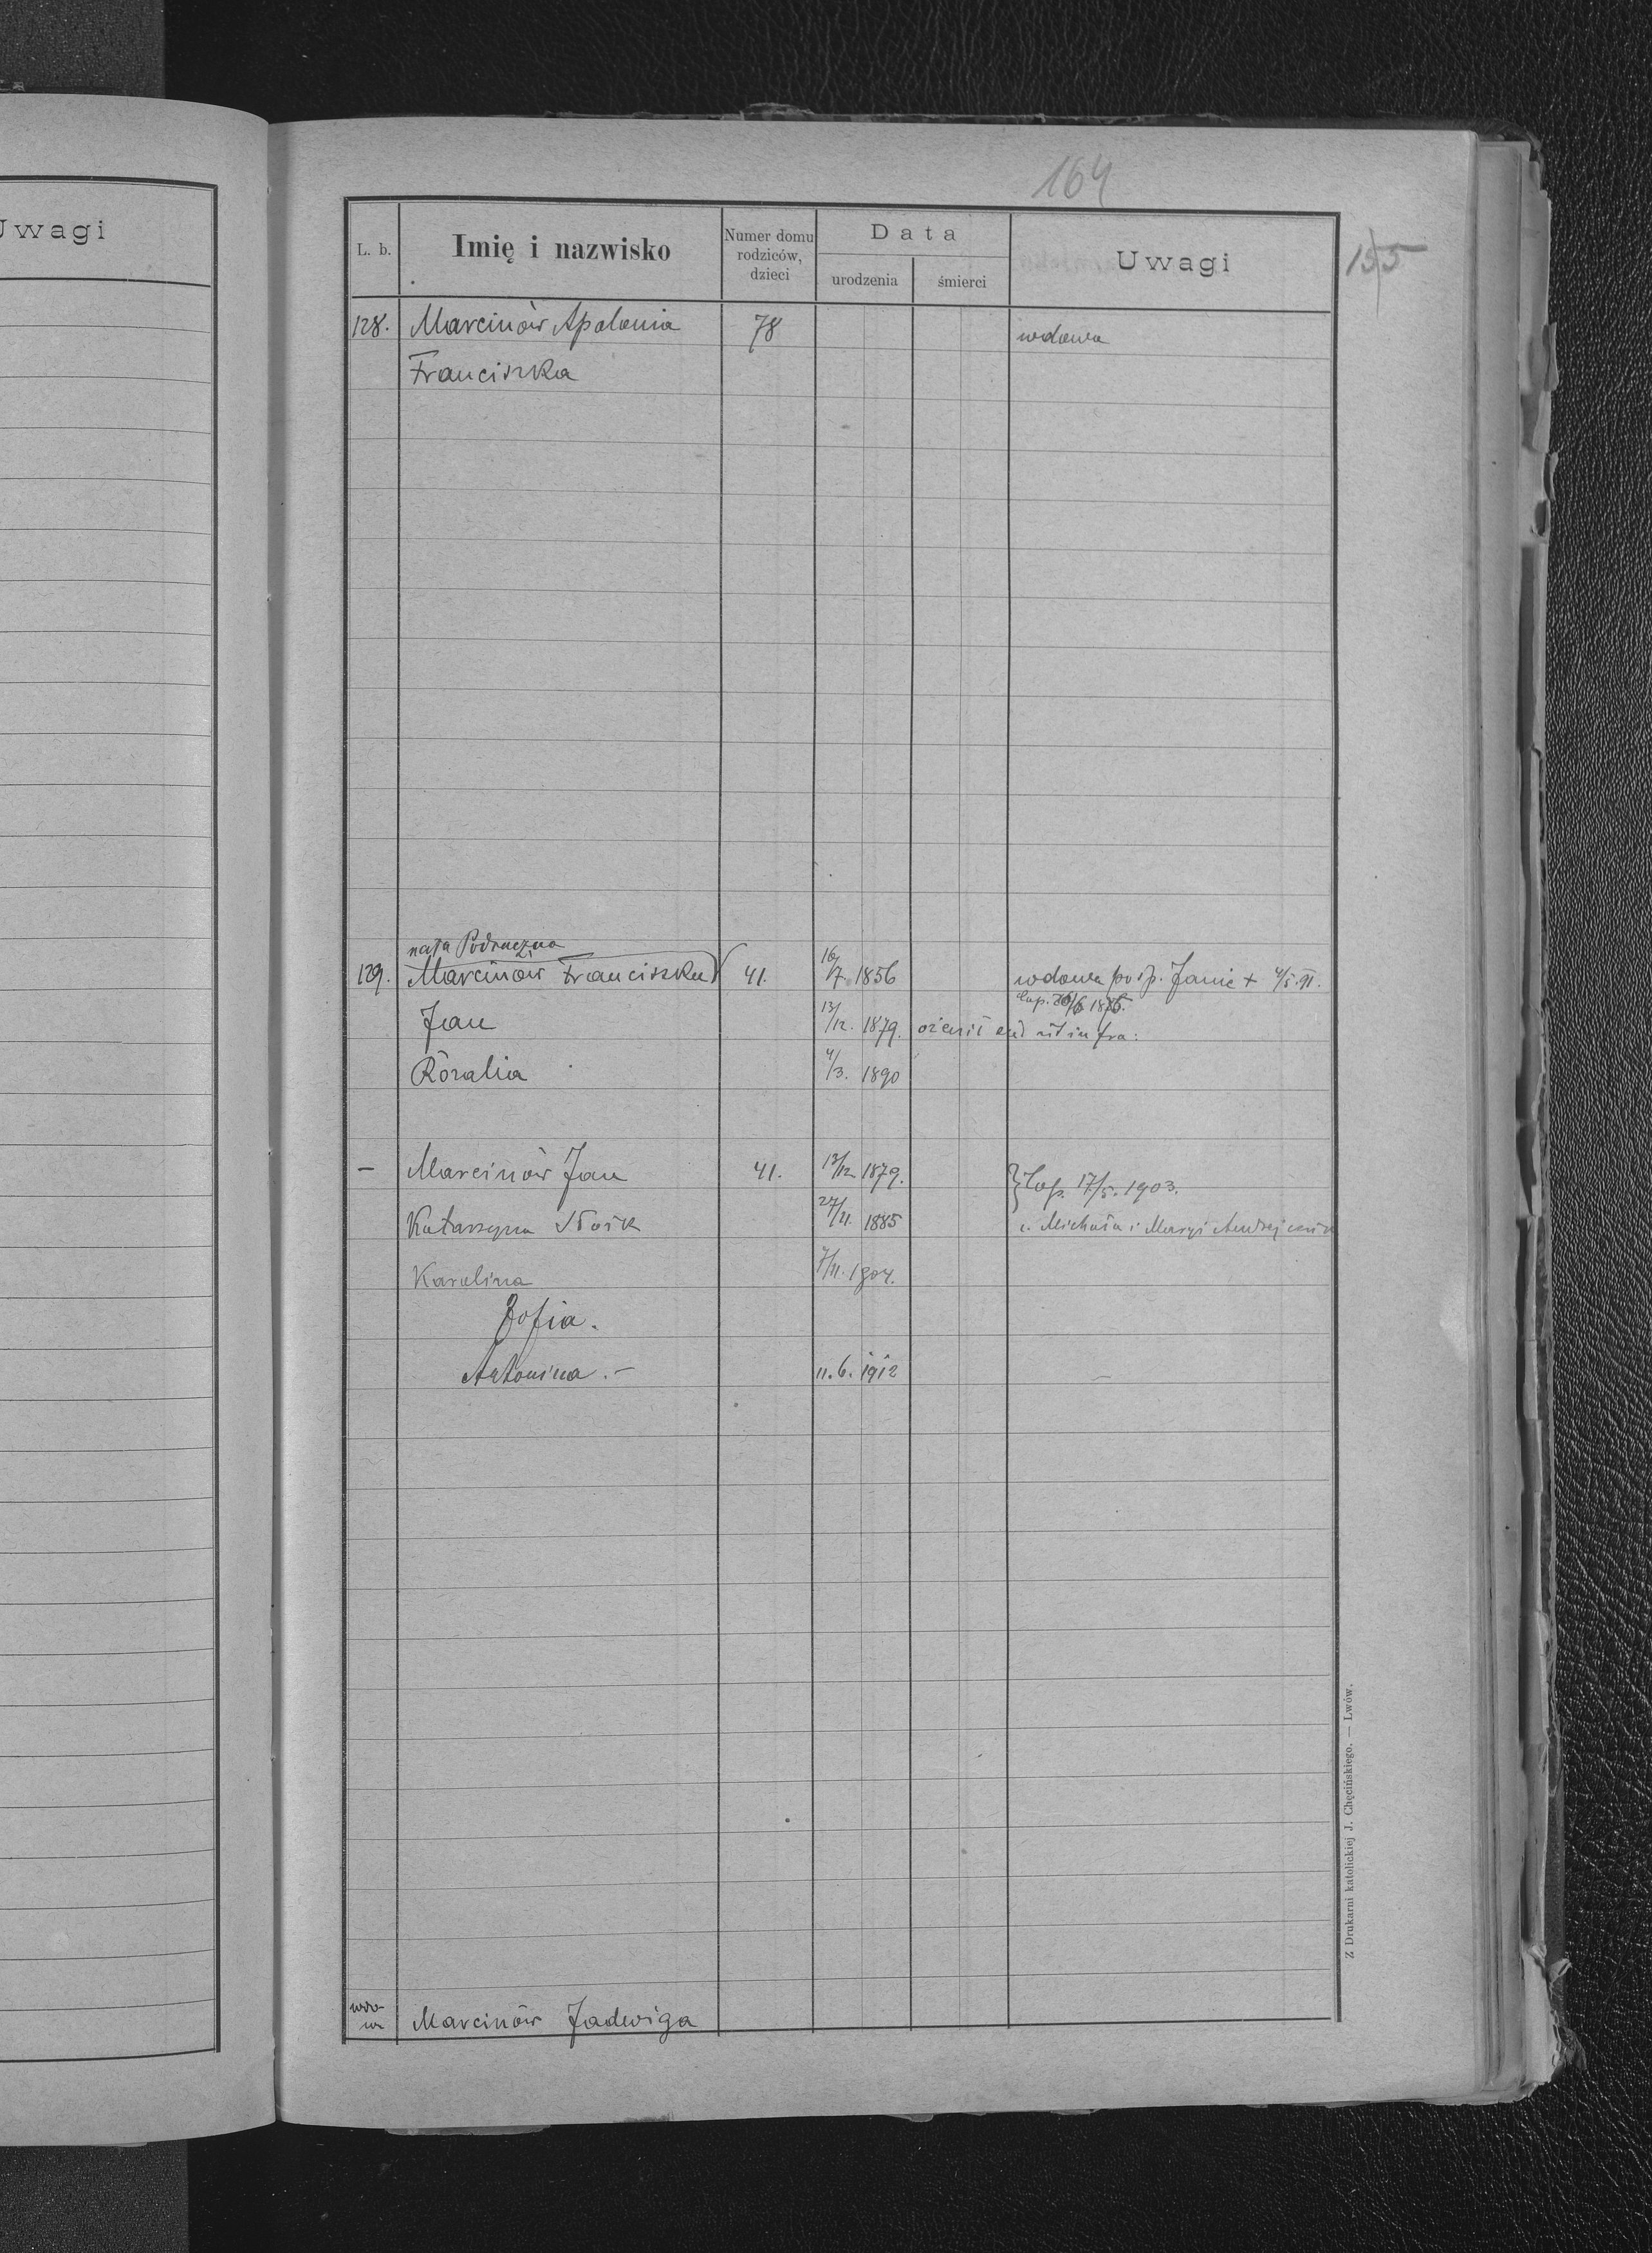 Uwagi
164
155
L. b.
Imię i nazwisko
Numer domu rodziców, dzieci
Data
urodzenia
śmierci
Uwagi
128. Marcinów Apolonia 78 wdowa
Franciszka
Podruczna
129. Marcinów Franciszka 41. 16/7. 1856 wdowa po śp. Janie + 4/5.
Jan 13/12. 1879. ożenił ut infra:
Rózalia 4/3. 1890
— Marcinów Jan 41. 13/12 1879. 17/5. 1903.
Katarzyna 27/11. 1885 c. Michała i Maryi
Karolina 7/11. 1904.
Zofia.
Antonina. — 11. 6. 1912 —
wdo-
wa Marcinów Jadwiga
Z Drukarni katolickiej J. Chęcińskiego. — Lwów.